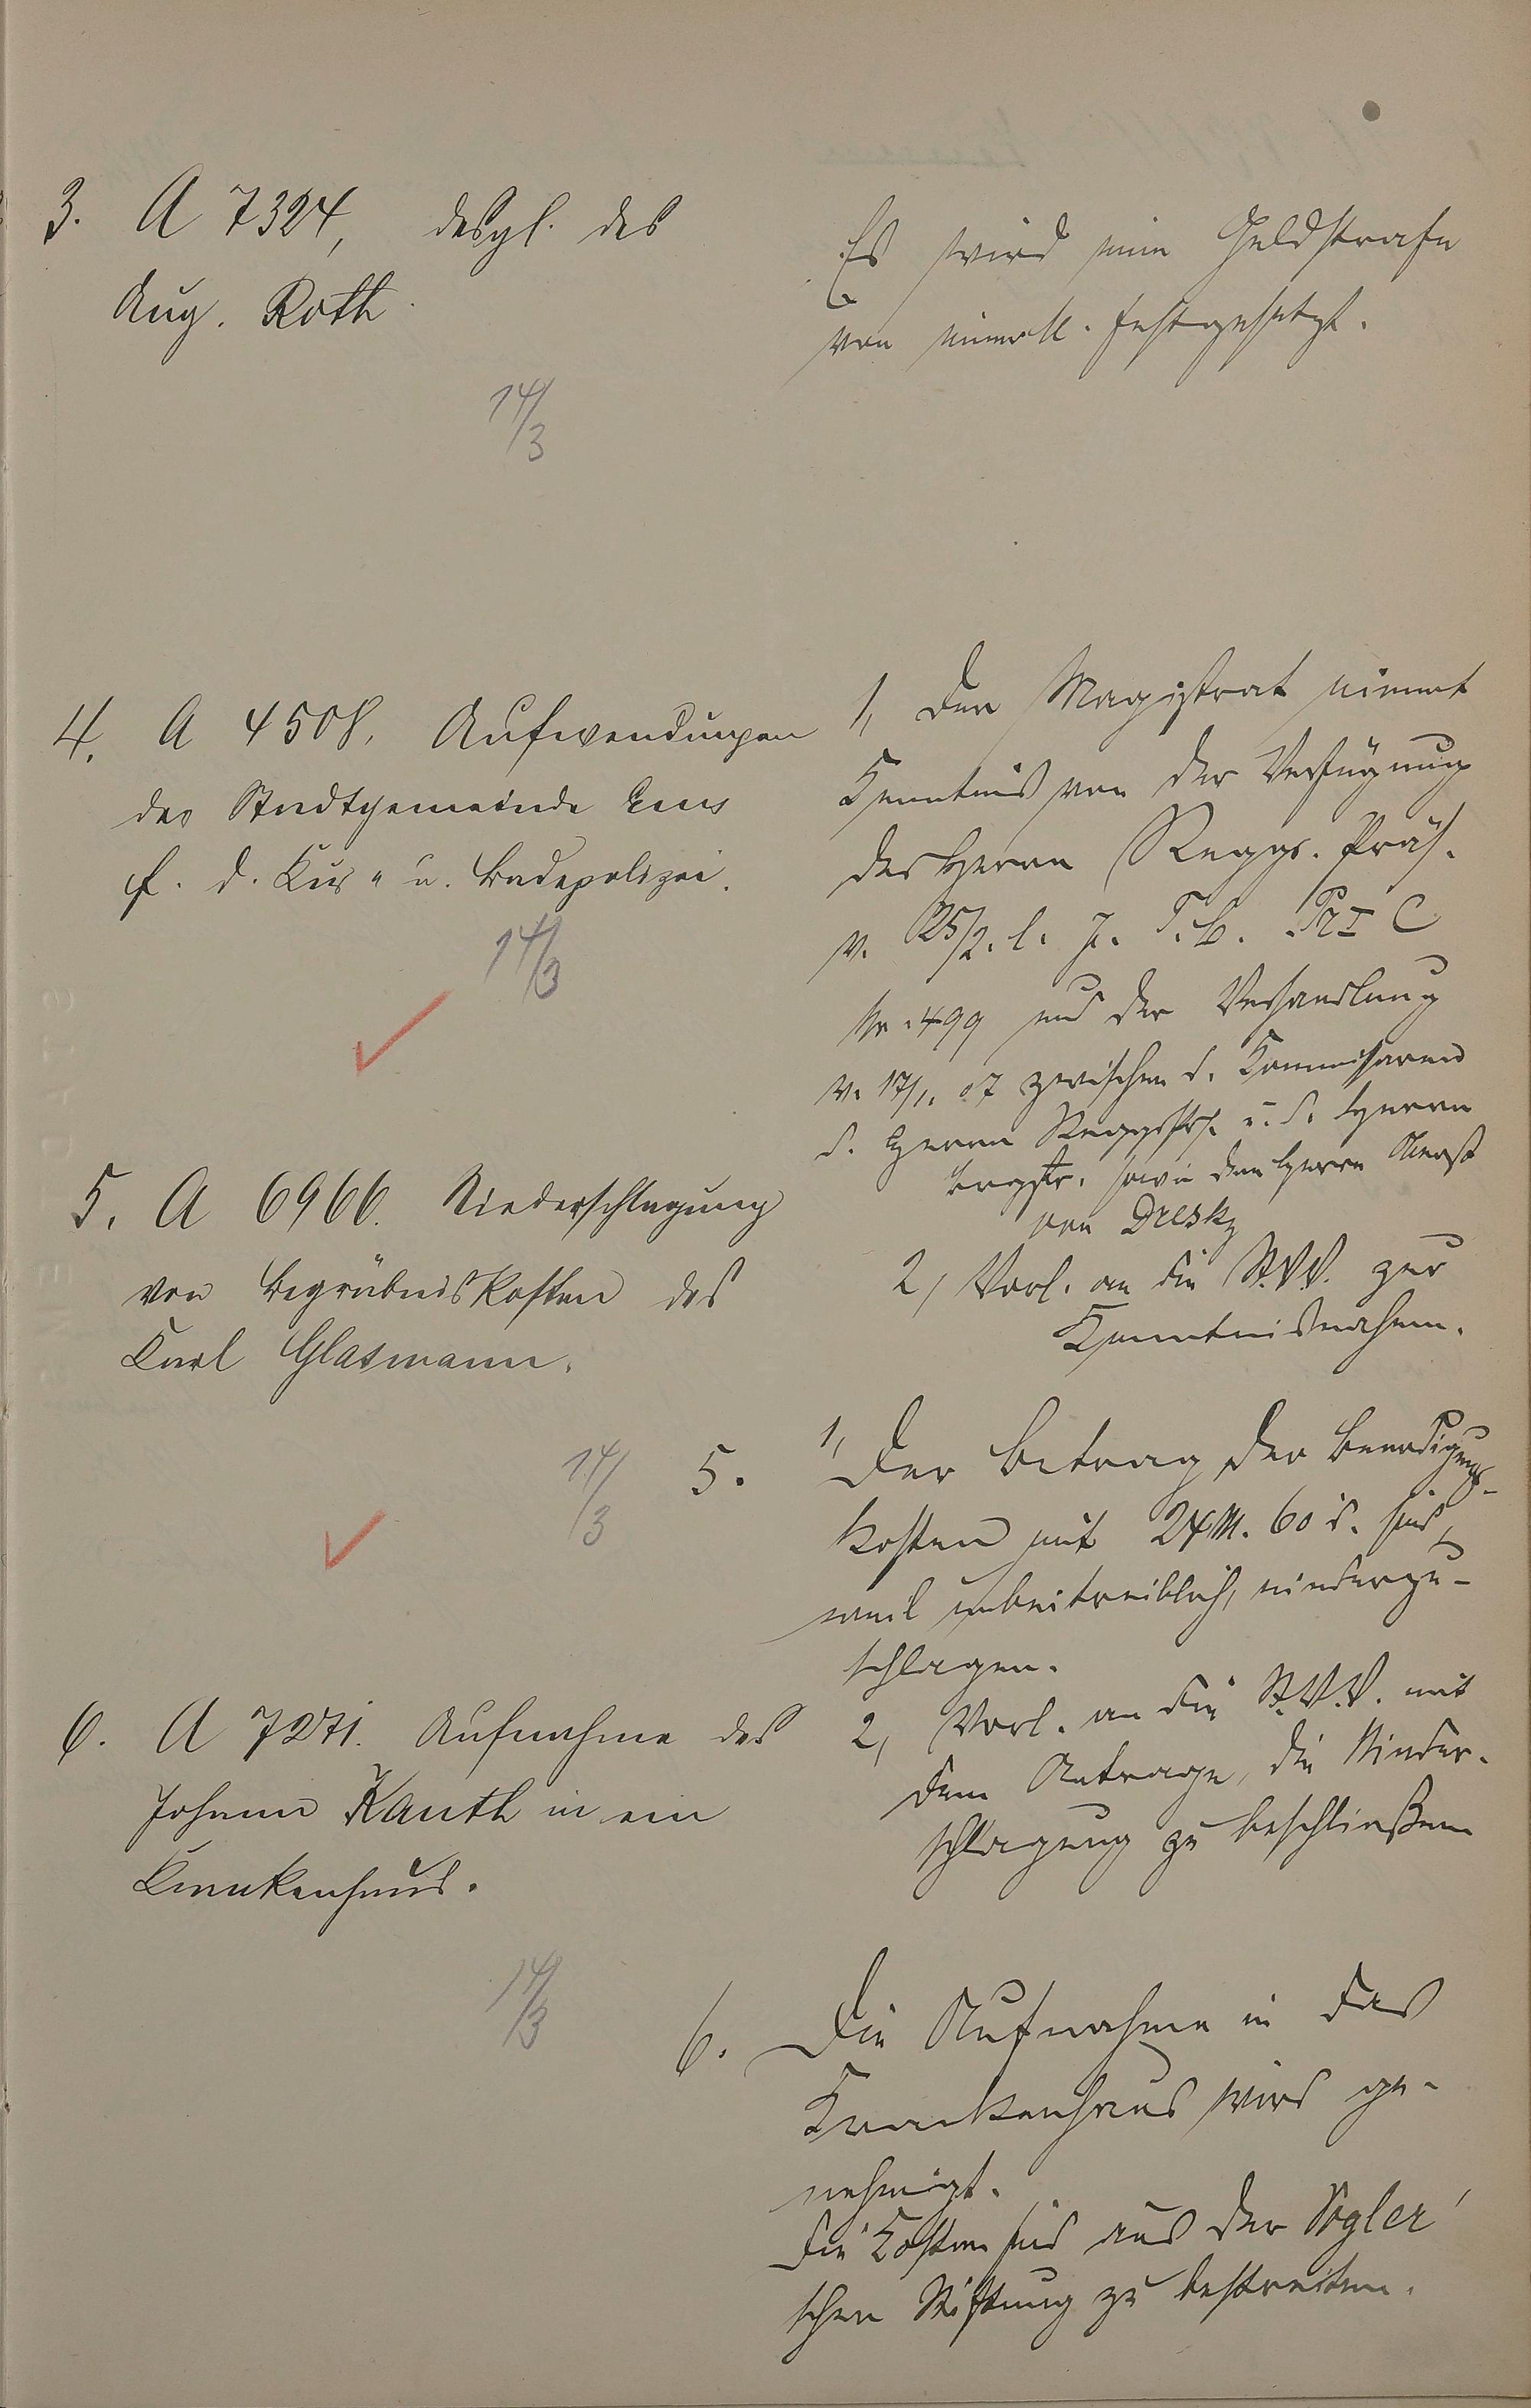 3. A 7324, desgl. des
Aug. Roth
14/3
Es wird eine Geldstrafe
von einer M. festgesetzt.
4. A 4508. Aufwendungen
der Stadtgemeinde Ems
f. d. Kur- u. Badepolizei.
14/3
1, Der Magistrat nimmt
Kenntnis von der Verfügung
des Herrn Reggs. Präs.
v. 25/2. l. J. T. b. Pr I C
Nr. 499 und der Verhandlung
v. 17/1. 07 zwischen d. Kommissaren
d. Herrn Reggspräs. u. d. Herrn
Brgstr. sowie dem Herrn Oberst
von Dresky
2, Vorl. an die St.V.V. zur
Kenntnisnahme.
5. A 6966. Niederschlagung
von Begräbniskosten des
Karl Glasmann.
14/3
5. 1, Der Betrag der Beerdigungs-
kosten mit 24 M. 60 d. sind,
weil unbeitreiblich, niederzu-
schlagen.
2, Vorl. an die St.V.V. mit
dem Antrage, die Nieder-
schlagung zu beschließen
6. A 7271. Aufnahme des
Johann Kauth in ein
Krankenhaus.
14/3
6. Die Aufnahme in das
Krankenhaus wird ge-
nehmigt.
Die Kosten sind aus der Vogler'
schen Stiftung zu bestreiten.